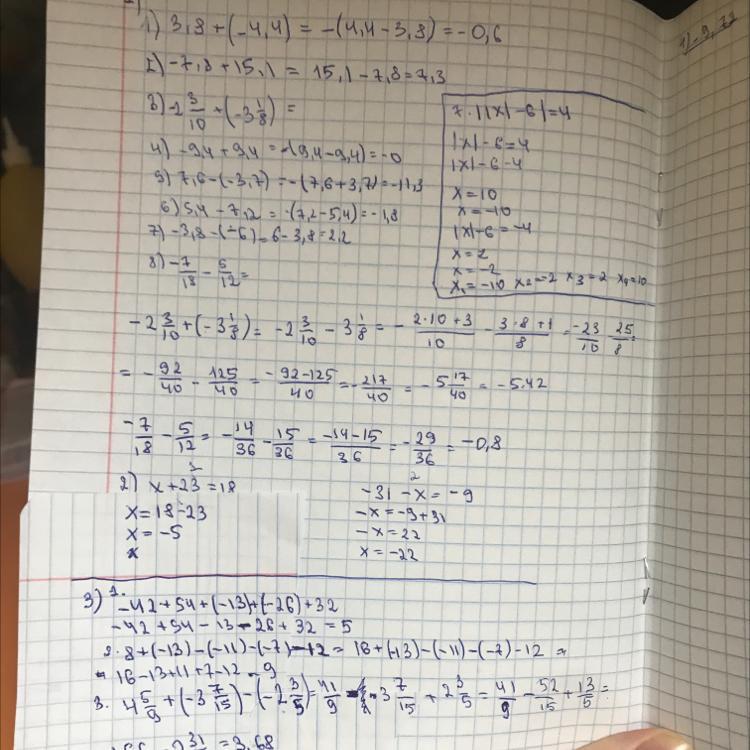 1) 3,8 + (-4,4) = -(4,4 - 3,8) = -0,6
2) -7,8 + 15,1 = 15,1 - 7,8 = 7,3
3) -2 3/10 + (-3 1/8) =
4) -9,4 + 9,4 = -(9,4 - 9,4) = -0
5) 7,6 - (-3,7) = -(7,6 + 3,7) = -11,3
6) 5,4 - 7,2 = -(7,2 - 5,4) = -1,8
7) -3,8 - (-6) = 6 - 3,8 = 2,2
8) -7/18 - 5/12 =
7. ||x| - 6| = 4
|x| - 6 = 4
|x| - 6 - 4
x = 10
x = -10
|x| - 6 = -4
x = 2
x = -2
x₁ = -10 x₂ = -2 x₃ = 2 x₄ = 10
-2 3/10 + (-3 1/8) = -2 3/10 - 3 1/8 = - 2·10+3/10 - 3·8+1/8 = -23/10 25/8 =
= - 92/40 - 125/40 = -92-125/40 = - 217/40 = -5 17/40 = -5.42
-7/18 - 5/12 = -14/36 - 15/36 = -14-15/36 = -29/36 = -0,8
2) 1
x + 23 = 18
x = 18 - 23
x = -5
x
2
-31 - x = -9
-x = -9 + 31
-x = 22
x = -22
3) 1.
-42 + 54 + (-13) + (-26) + 32
-42 + 54 - 13 - 26 + 32 = 5
2. 8 + (-13) - (-11) - (-7) - 12 = 16 + (-13) - (-11) - (-7) - 12 =
= 16 - 13 + 11 + 7 - 12 - 9
3. 4 5/9 + (-3 7/15) - (-2 3/5) = 41/9 - 3 7/15 + 2 3/5 = 41/9 - 52/15 + 13/5 =
= 3,68